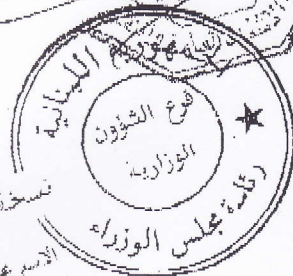 الجمهورية اللبنانية
فرع الشؤون
الوزارية
رئاسة مجلس الوزراء